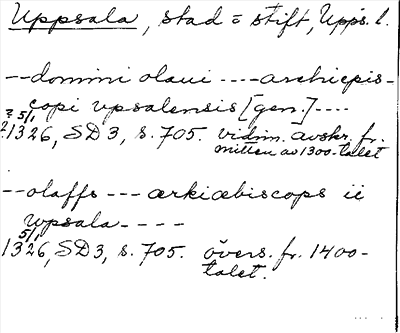 Uppsala, stad o stift, Upps. l.
--domini olaui ---- archiepis-
copi vpsalensis [gen.]----
? 5/1
?1326, SD3, s. 705. vidim. avskr. fr.
mitten av 1300-talet
--olaffs --- ærkiæbiscops ii
wpsala----
5/1
1326, SD3, s. 705. övers. fr. 1400-
talet.